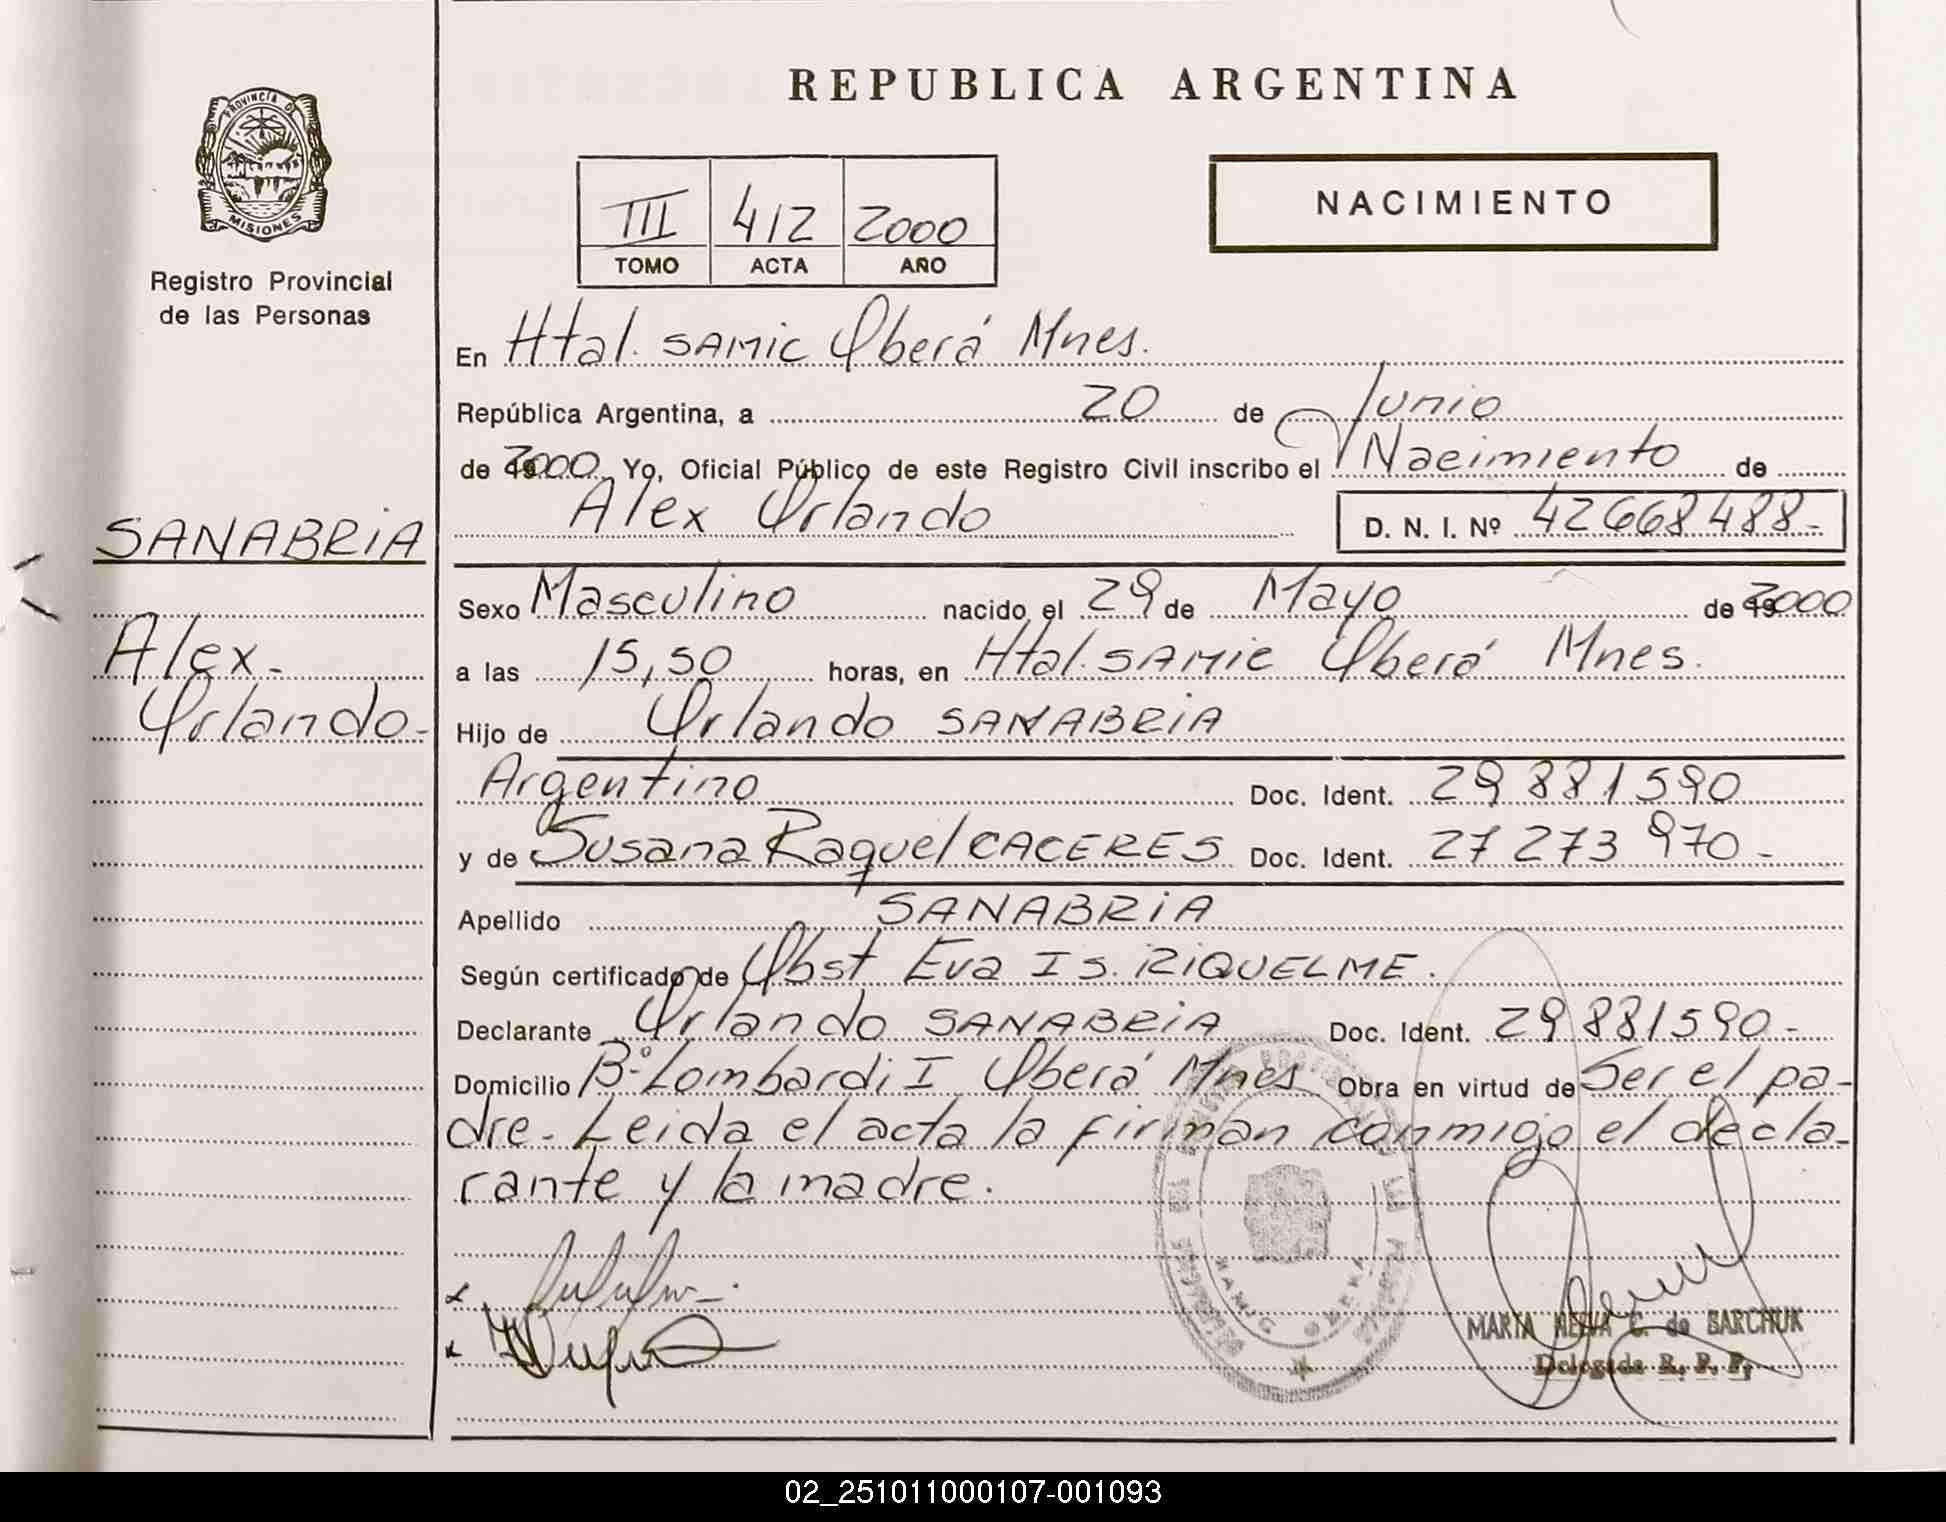 PROVINCIA DE
MISIONES
Registro Provincial
de las Personas
SANABRIA
Alex-
Orlando-
REPUBLICA ARGENTINA
III 412 2000
TOMO ACTA AÑO
NACIMIENTO
En Htal. SAMIC Oberá Mnes.
República Argentina, a 20 de Junio
de 2000 Yo, Oficial Público de este Registro Civil inscribo el Nacimiento de
Alex Orlando D. N. I. Nº 42668488-
Sexo Masculino nacido el 29 de Mayo de 2000
a las 15,50 horas, en Htal. SAMIC Oberá Mnes.
Hijo de Orlando SANABRIA
Argentino Doc. Ident. 29 881590
y de Susana Raquel CACERES Doc. Ident. 27 273 970-
Apellido SANABRIA
Según certificado de Obst Eva Is. RIQUELME.
Declarante Orlando SANABRIA Doc. Ident. 29 881590-
Domicilio Bº Lombardi I Oberá Mnes Obra en virtud de Ser el pa-
dre- Leida el acta la firman conmigo el decla-
rante y la madre.
MARIA C. de SARCHUK
Delegada R. P. P.
02_251011000107-001093